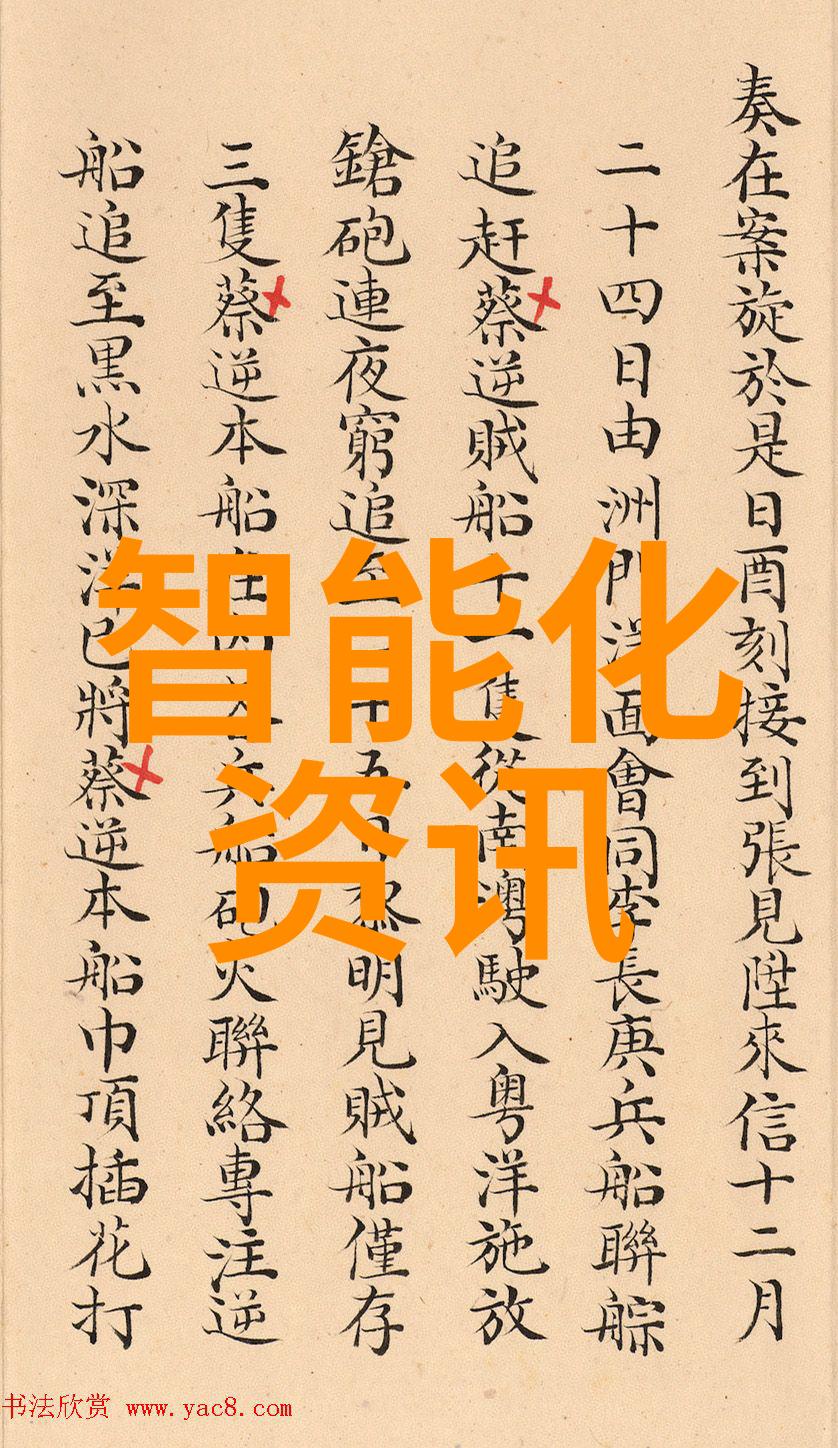 奏在案旋於是日酉刻接到張見陞來信十二月
二十四日由洲門洋面會同李長庚兵船聯䑸
追赶蔡逆賊船十一隻從南澳駛入粤洋施放
鎗砲連夜窮追至二十五日黎明見賊船僅存
三隻蔡逆本船在內各兵船砲火聯絡專注逆
船追至黒水深洋已將蔡逆本船巾頂插花打
智能化
资讯
书法欣赏 www.yac8.com